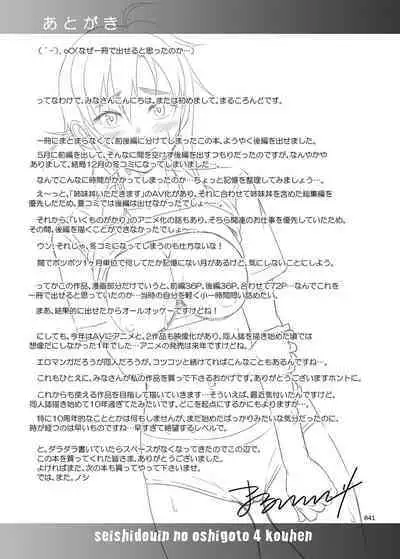 あとがき
(´-)。oO(なぜ一冊で出せると思ったのか…)
ってなわけで、みなさんこんにちは。または初めまして、まるころんどです。
一冊にまとまらなくて、前後編に分けてしまったこの本、ようやく後編を出せました。
5月に前編を出して、そんなに間を空けず後編を出すつもりだったのですが、なんやかや
ありまして、結局12月の冬コミになってしまいました…
なんでこんなに時間がかかってしまったのか…ちょっと記憶を整理してみましょう…。
え〜っと、「姉妹丼いただきます」のAV化があり、それに合わせて姉妹丼を含めた総集編を
優先したため、夏コミでは後編は出せなかったでしょ〜、
それから、「いくものがかり」のアニメ化の話もあり、そちら関連のお仕事を優先していたため、
その間、後編を描くことができなかったでしょ〜、
ウン！それじゃ、冬コミになってしまうのも仕方ないな！
間でポツポツ1ヶ月単位で何してたか記憶にない月があるけど、気にしないことにしよう。
ってかこの作品、漫画部分だけでいうと、前編36P、後編36P、合わせて72P…なんでこれを
一冊で出せると思っていたのか…当時の自分を軽く小一時間問い詰めたい。
まあ、結果的に出せたからオールオッケーですけどね！
にしても、今年はAVにアニメと、2作品も映像化があり、同人誌を描き始めた頃では
想像だにしなかった1年でした…アニメの発売は来年ですけどね。
エロマンガだろうが同人だろうが、コツコツと続ければこんなこともあるんですね…。
これもひとえに、みなさんが私の作品を買って下さるおかげです、ありがとうございますホントに。
これからも使える作品を目指して描いていきます…そういえば、最近気付いたんですけど、
同人誌描き始めて10年過ぎてたみたいです。どこを起点にするかにもよりますが…、
特に10周年的なこととかは何もしませんが、まだ始めたばっかりみたいな気分だったのに、
時が経つのは早いものですね…早すぎて絶望するレベルで。
と、ダラダラ書いていたらスペースがなくなってきたのでこの辺で。
この本を買ってくれた皆さま、ありがとうございました。
よければまた、次の本も買ってやって下さいませ。
では、また。ノシ
041
seishidouin no oshigoto 4 kouhen